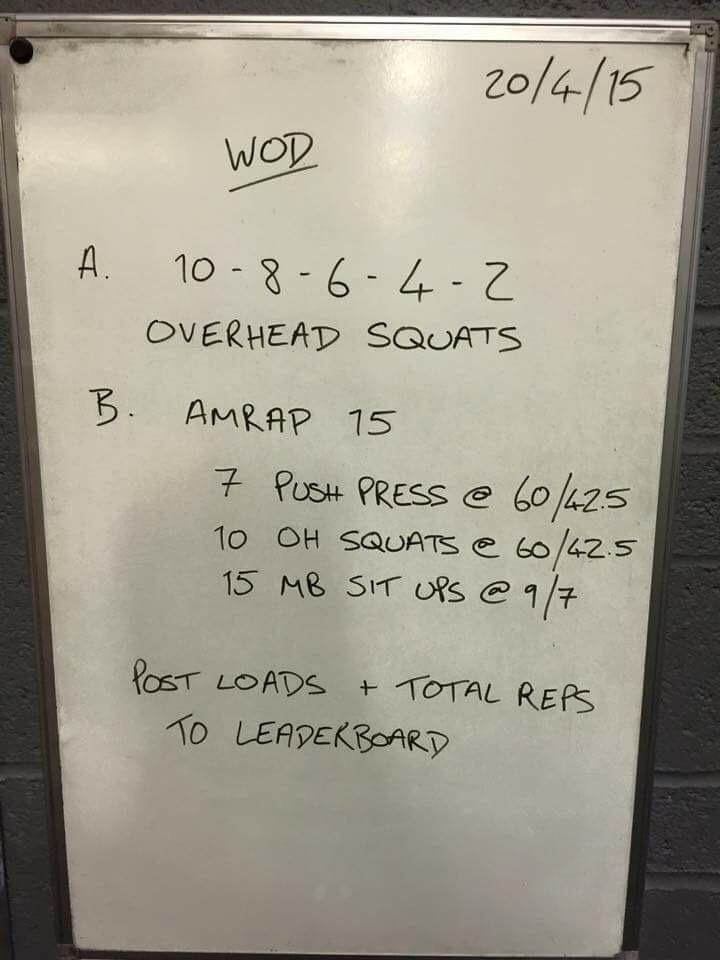 20/4/15
WOD
A. 10 - 8 - 6 - 4 - 2
OVERHEAD SQUATS
B. AMRAP 15
7 PUSH PRESS @ 60/42.5
10 OH SQUATS @ 60/42.5
15 MB SIT UPS @ 9/7
POST LOADS + TOTAL REPS
TO LEADERBOARD